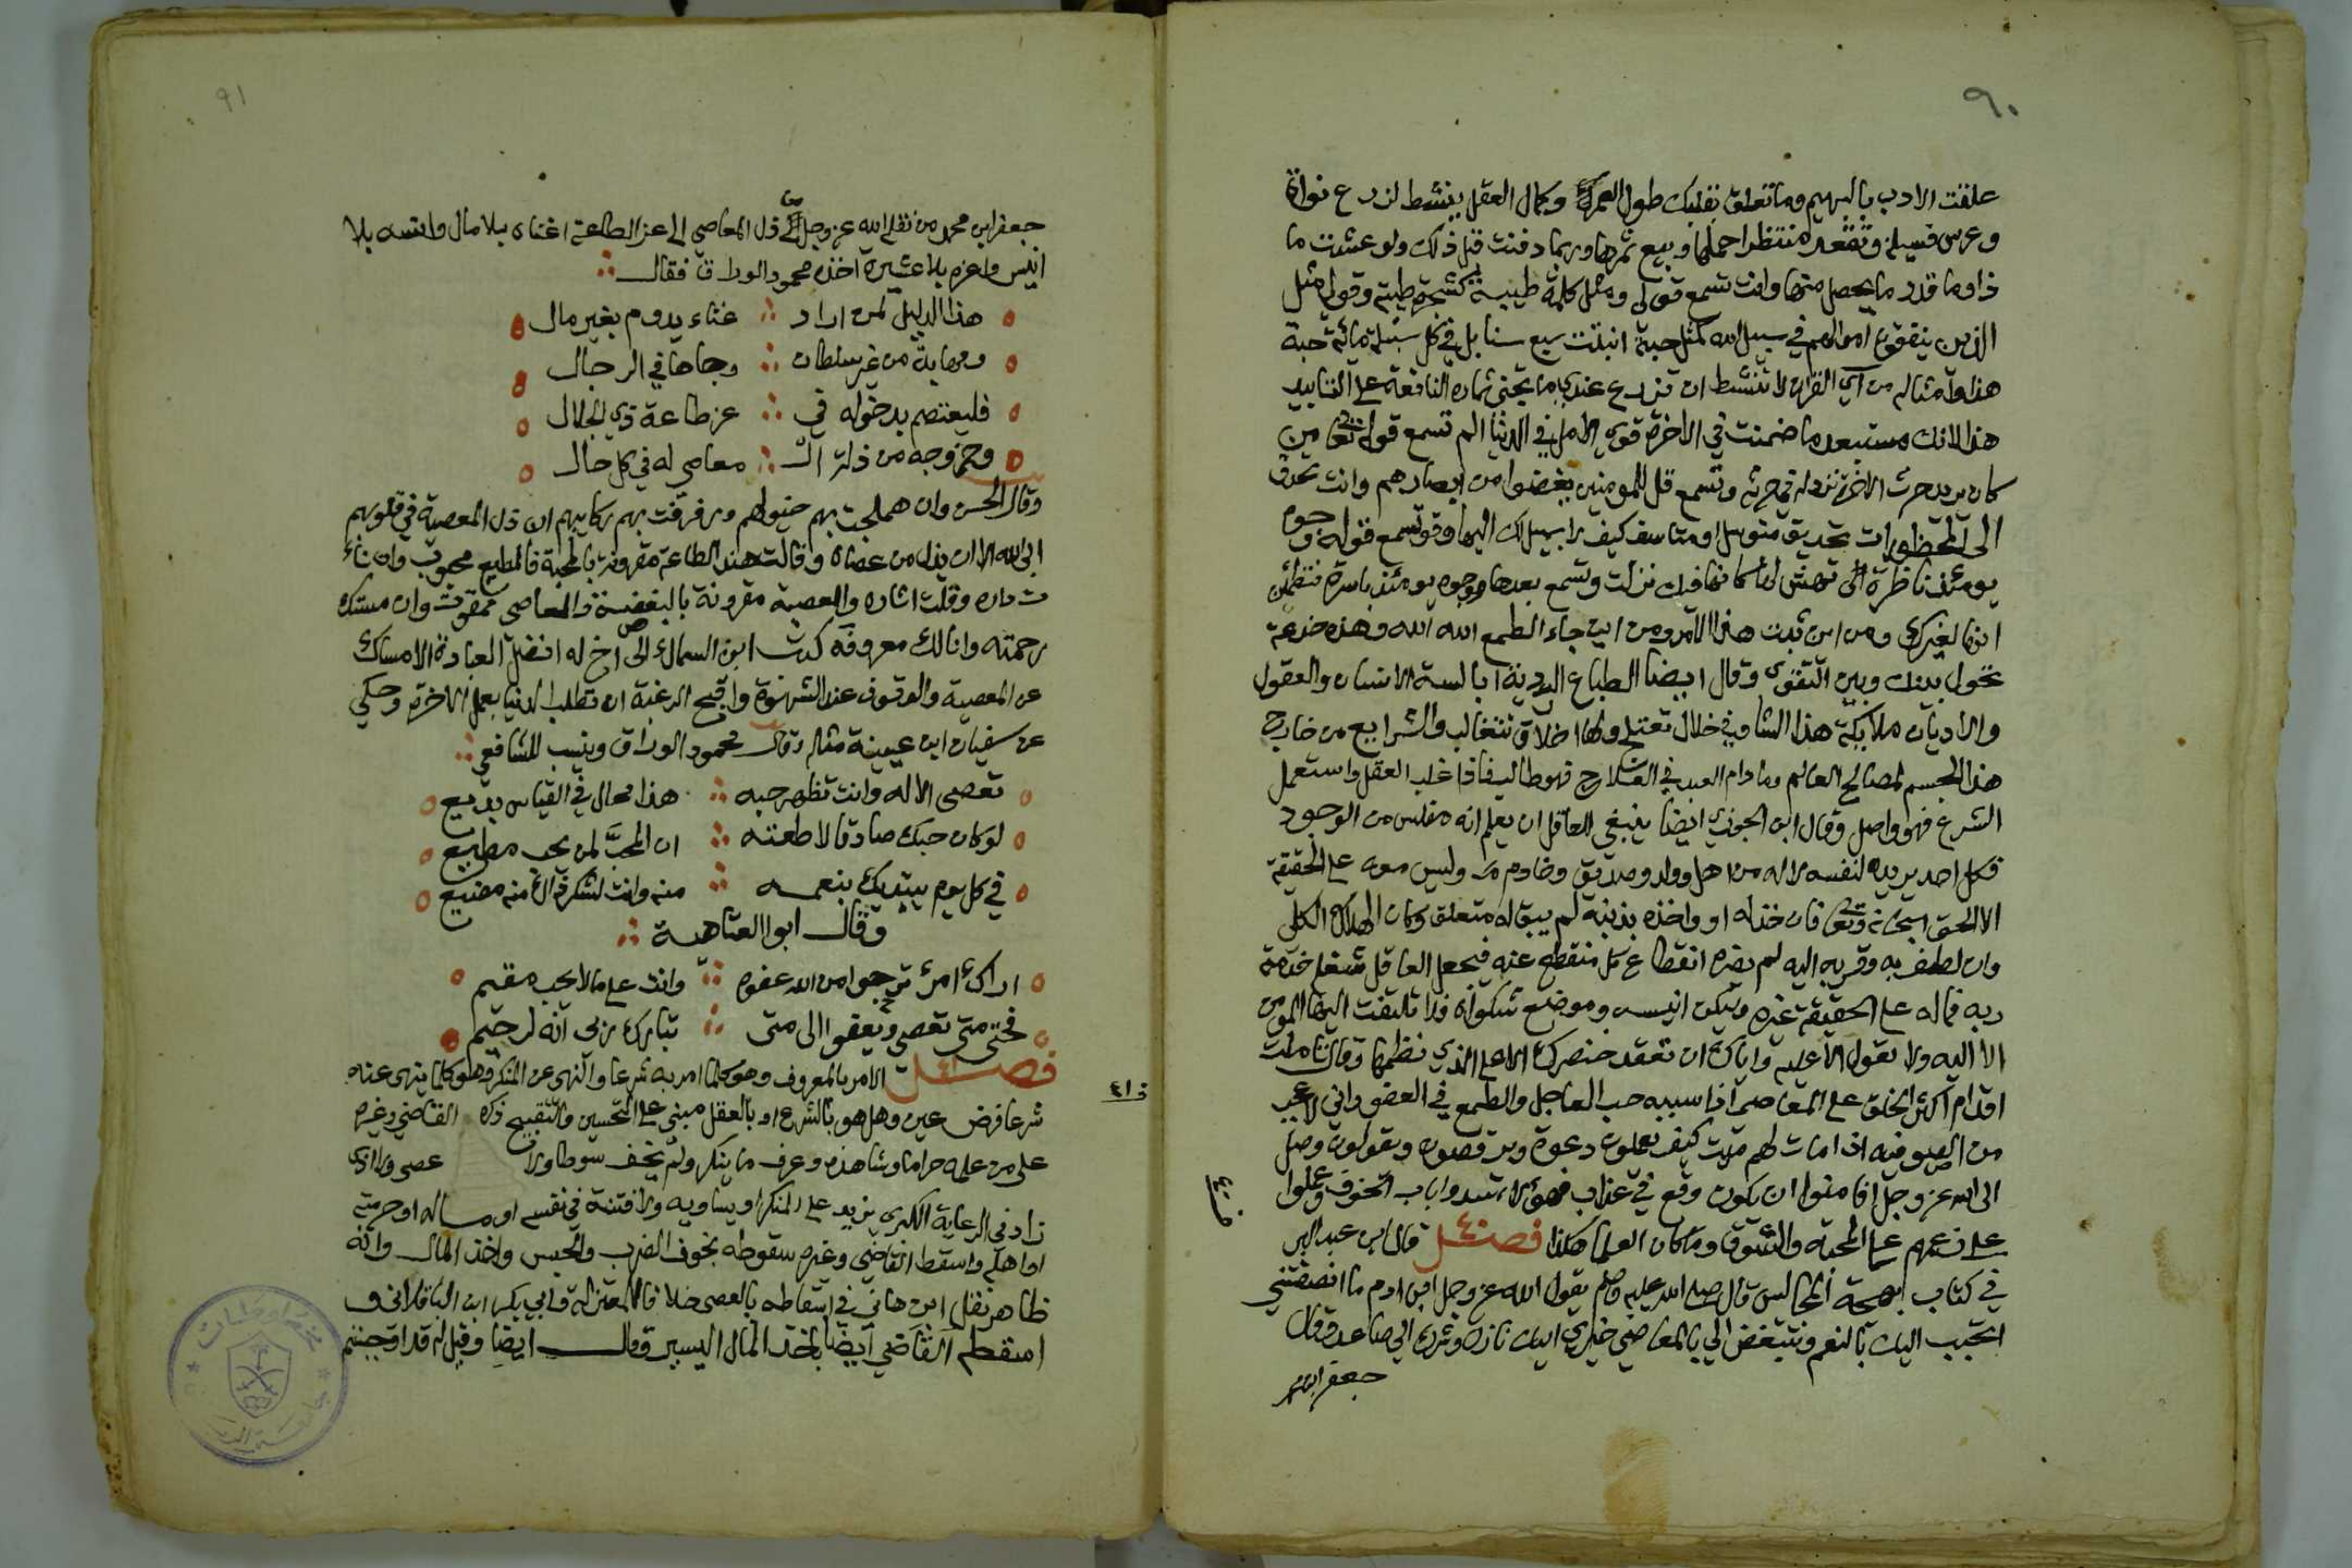 ٩٠
علقت الادب بالبهيم وما تعلق بقلبك طول العمر وكمال العقل ينشط لزرع نواة
وغرس فسيلة وتقعد منتظرا حملها وبيع ثمرها وربما دفنت قبل ذلك ولو عشت ما
ذا وما قدر ما يحصل منها وانت تسمع قولي ومثل كلمة طيبة كشجرة طيبة وقول مثل
الذين ينفقون اموالهم في سبيل الله كمثل حبة انبتت سبع سنابل في كل سنبلة مائة حبة
هذا وامثاله من آي القران لا تنشط ان تزرع عندي ما يجنى ثماره النافعة على التابيد
هذا لانك مستبعد ما ضمنت في الاخرة قوي الامل في الدنيا الم تسمع قوله تعالى من
كان يريد حرث الاخرة نزد له في حرثه وتسمع قل للمومنين يغضوا من ابصارهم وانت تحدق
الى المحظورات تحديق متوسل او متاسف كيف لا سبيل لك اليها وقد تسمع قوله وجوه
يومئذ ناظرة الى تهش لها كانها فيك نزلت وتسمع بعدها ووجوه يومئذ باسرة فتطمئن
انها لغيرك ومن اين ثبت هذا الامر ومن اين جاء الطمع الله الله وهذه خدعة
تحول بينك وبين التقوى وقال ايضا الطباع الردية ابالسة الانسان والعقول
والاديان ملايكة هذا الشان في خلال تعتلج ولها اخلاق تتغالب والشرايع من خارج
هذا الجسم لمصالح العالم وما دام العبد في العلاج فهو طالب فاذا غلب العقل واستعمل
الشرع فهو واصل وقال ابن الجوزي ايضا ينبغي للعاقل ان يعلم انه مفلس من الوجود
فكل احد يريده لنفسه لا له من اهل وولد وصديق وخادم وليس معه على الحقيقة
الا الحق سبحانه وتعالى فان خذله او واخذه بذنبه لم يبق له متعلق وكان الهلاك الكلي
وان لطف به وقربه اليه لم يضره انقطاع كل منقطع عنه فيجعل العاقل شغله خدمة
ربه فما له على الحقيقة غيره وليكن انيسه وموضع شكواه فلا تلتفت ايها المومن
الا اليه ولا تعول الا عليه واياك ان تعقد خنصرك الا على الذي نظمها وقال تاملت
اقدام اكثر الخلق على المعاصي فاذا سببه حب العاجل والطمع في العفو واني لاعجب
من الصوفية اذا مات لهم ميت كيف يعملون دعوة ويرقصون ويقولون وصل
الى الله عز وجل افامنوا ان يكون وقع في عذاب فهؤلاء سدوا باب الخوف وعملوا
على زعمهم على المحبة والشوق وما كان العلماء هكذا فصل قال ابن عبد البر
في كتاب بهجة المجالس قال صلى الله عليه وسلم يقول الله عز وجل ابن ادم ما انصفتني
اتحبب اليك بالنعم وتتبغض الي بالمعاصي خيري اليك نازل وشرك الي صاعد وقال
جعفر ابن محمد
٩١
جعفر ابن محمد من نقله الله عز وجل من ذل المعاصي الى عز الطاعة اغناه بلا مال وانسه بلا
انيس واعزه بلا عشيرة اخذه محمود الوراق فقال
هذا الدليل لمن اراد ∴ غناء يدوم بغير مال
ومهابة من غير سلطان ∴ وجاها في الرجال
فليعتصم بدخوله في ∴ عز طاعة ذي الجلال
وخروجه من ذلة الـ ∴ معاصي له في كل حال
وقال الحسن وان هملجت بهم خيولهم ورفرفت بهم ركايبهم ان ذل المعصية في قلوبهم
ابى الله الا ان يذل من عصاه وقالت هند الطاعة مقرونة بالمحبة فالمطيع محبوب وان نات
ت داره وقلت اثاره والمعصية مقرونة بالبغضة والعاصي ممقوت وان مستك
رحمته وانالك معروفه كتب ابن السماك الى اخ له افضل العبادة الامساك
عن المعصية والوقوف عند الشهوة واقبح الرغبة ان تطلب الدنيا بعمل الاخرة وحكي
عن سفيان ابن عيينة مثله وقال محمود الوراق وينسب للشافعي
تعصي الاله وانت تظهر حبه ∴ هذا محال في القياس بديع
لو كان حبك صادقا لاطعته ∴ ان المحبَّ لمن يحب مطيع
في كل يوم يبتديك بنعمه ∴ منه وانت لشكر ذاك منه مضيع
وقال ابوا العتاهية
اراك امرءً ترجوا من الله عفوه ∴ وانت على ما لا يحب مقيم
فحتى متى تعصي ويعفوا الى متى ∴ تبارك ربي انه لرحيم
فصل الامر بالمعروف وهو كلما امر به شرعا والنهي عن المنكر وهو كلما ينهى عنه
شرعا فرض عين وهل هو بالشرع او بالعقل مبني على التحسين والتقبيح ذكره القاضي وغيره
على من علمه حراما وشاهده وعرف ما ينكر ولم يخف سوطا ولا عصى ولا اذى
زاد في الرعاية الكبرى يزيد على المنكر او يساويه ولا فتنة في نفسه او ماله او حرمته
او اهله واسقط القاضي وغيره سقوطه بخوف الضرب والحبس واخذ المال وانه
ظاهر نقل ابن هاني في اسقاطه بالعصى خلافا للمعتزلة وابي بكر ابن الباقلاني و
اسقطه القاضي ايضا باخذ المال اليسير وقال ايضا وقيل له قد اوجبتم